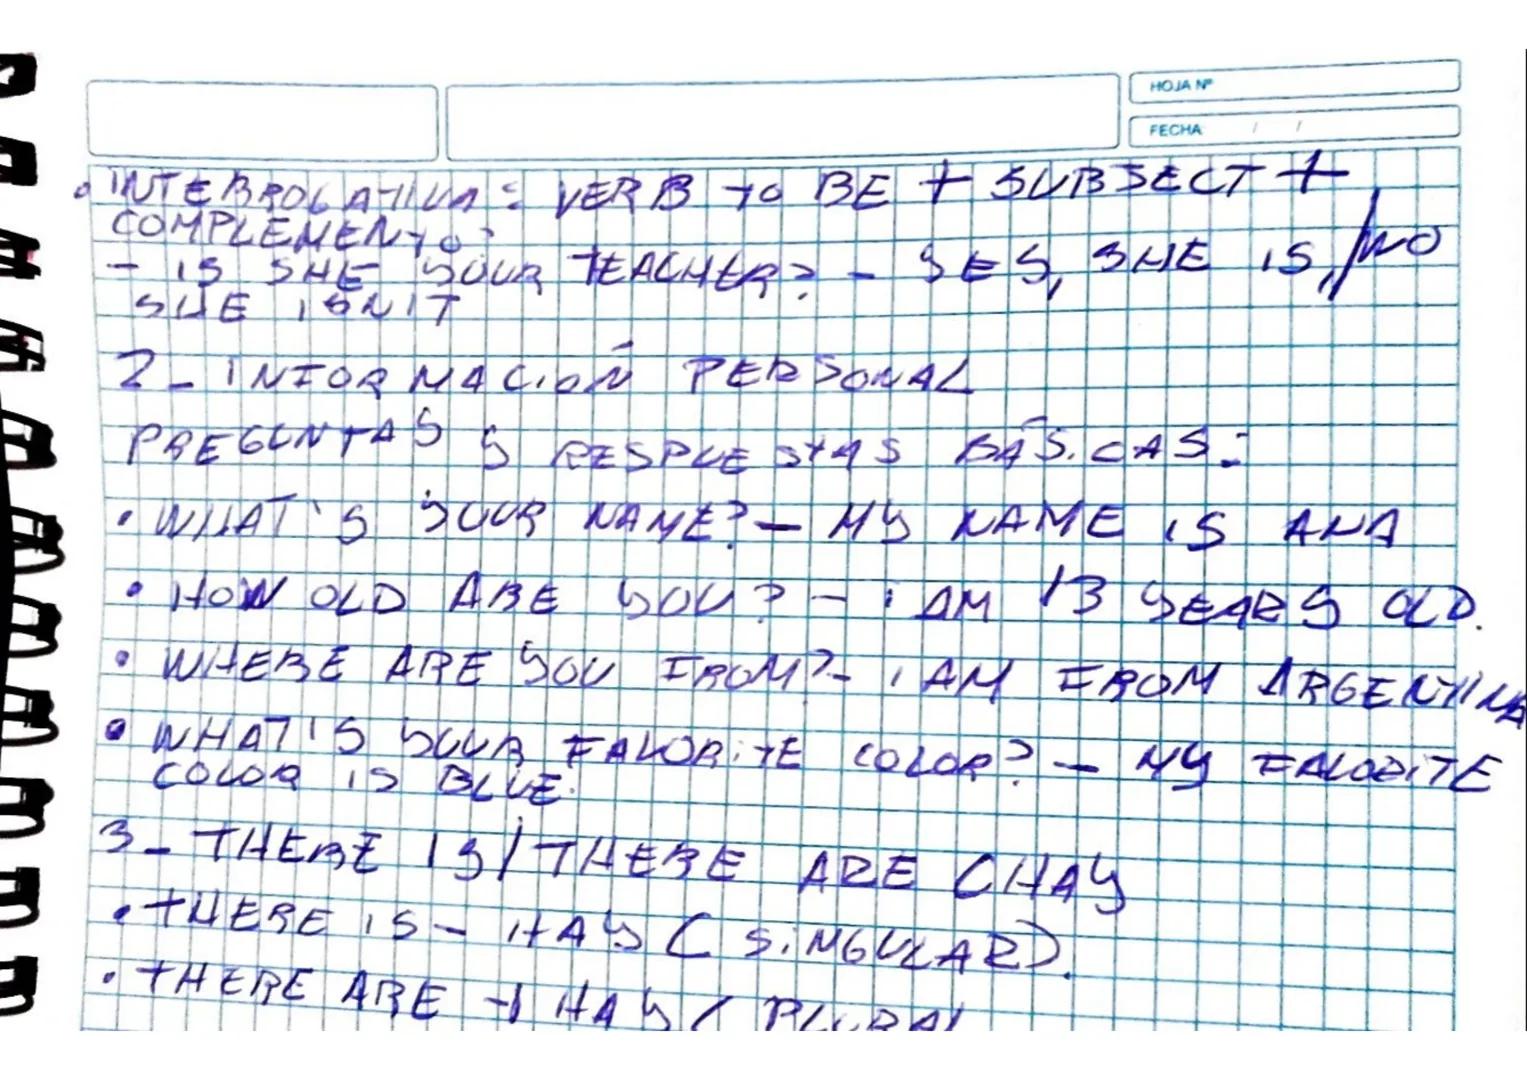 HOJA Nº
FECHA / /
• INTERROGATIVA: VERB TO BE + SUBJECT +
COMPLEMENTO:
- IS SHE YOUR TEACHER? - YES, SHE IS, / NO
SHE ISN'T
2 - INFORMACIÓN PERSONAL
PREGUNTAS Y RESPUESTAS BÁSICAS:
• WHAT'S YOUR NAME? - MY NAME IS ANA
• HOW OLD ARE YOU? - I AM 13 YEARS OLD.
• WHERE ARE YOU FROM? - I AM FROM ARGENTINA
• WHAT'S YOUR FAVORITE COLOR? - MY FAVORITE
COLOR IS BLUE.
3 - THERE IS / THERE ARE (HAY
• THERE IS - HAY (SINGULAR).
• THERE ARE - HAY (PLURAL